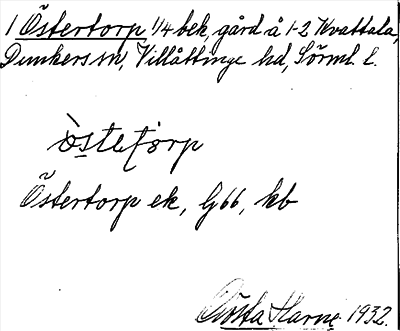 1 Östertorp 1/4 bek, gård å 1-2 Kvattala,
Dunkers sn, Villåttinge hd, Sörml. l.
òsteţòrp
Östertorp ek, G66, kb
Gösta Harne 1932.